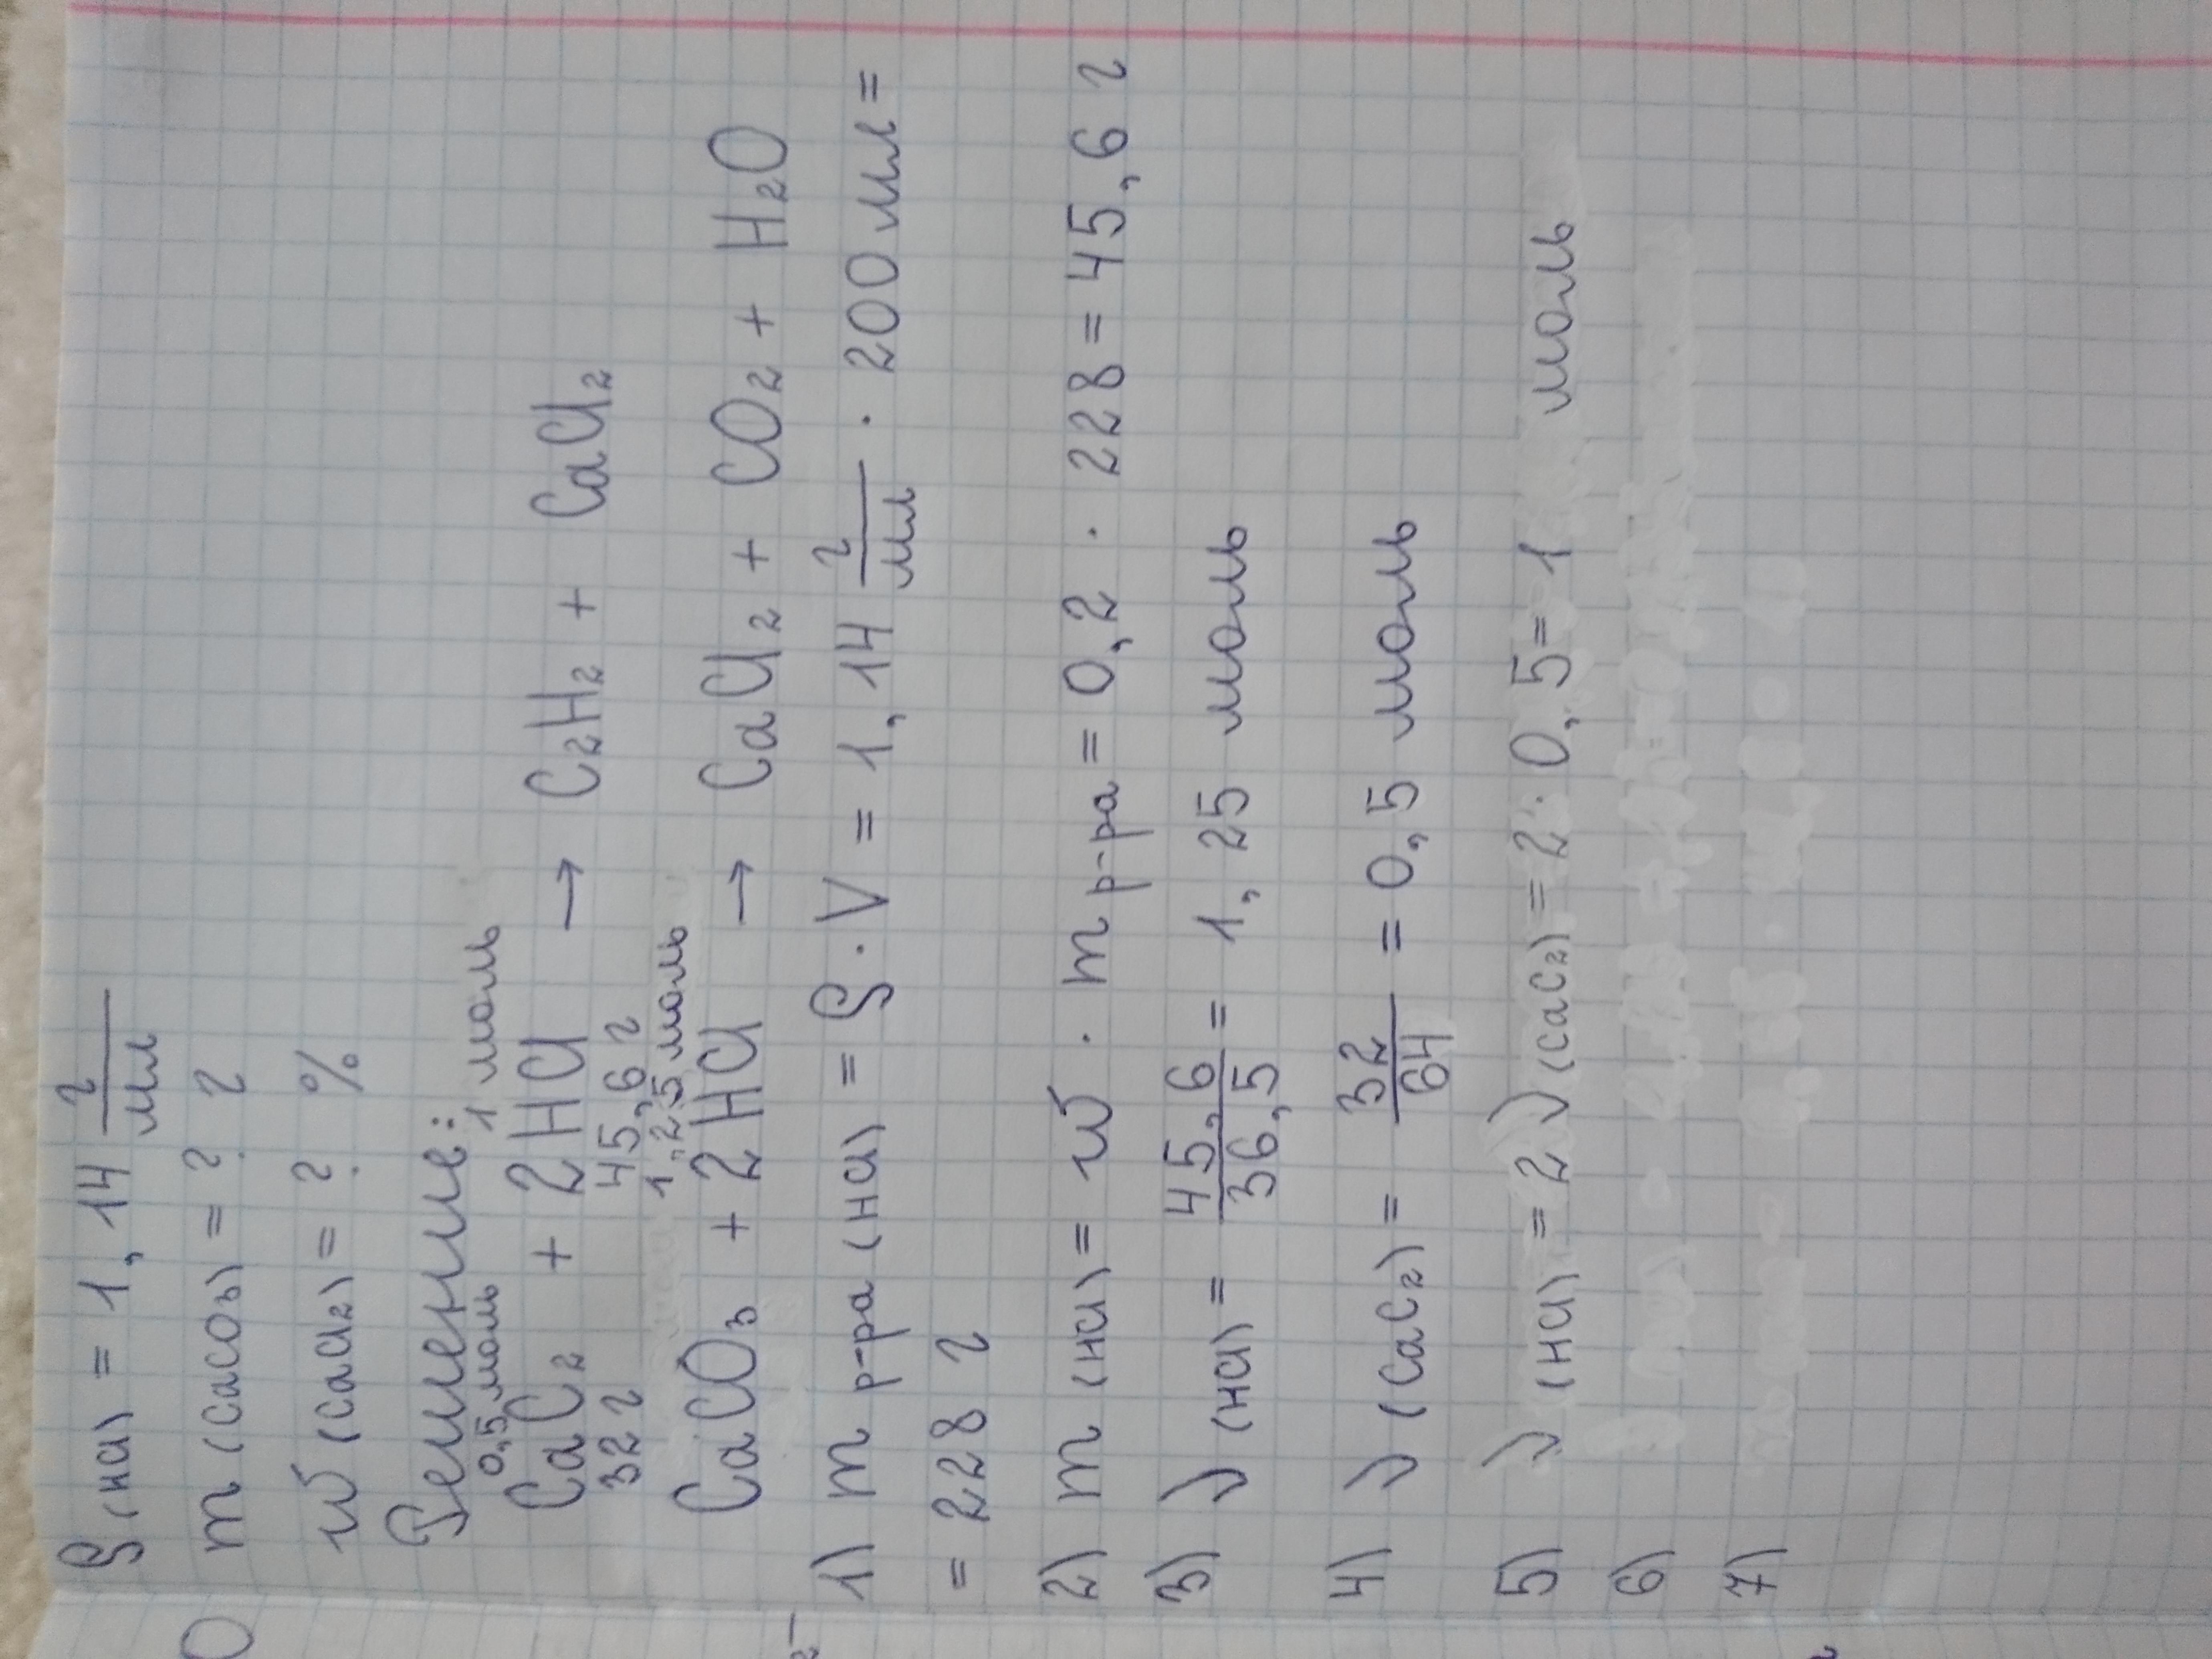 ρ(HCl) = 1,14 г/мл
m(CaCO₃) = ? г
ω(CaCl₂) = ? %
Решение:
0,5 моль 1 моль
CaC₂ + 2HCl → C₂H₂ + CaCl₂
32 г 45,6 г
1,25 моль
CaCO₃ + 2HCl → CaCl₂ + CO₂ + H₂O
1) m р-ра (HCl) = ρ · V = 1,14 г/мл · 200 мл =
= 228 г
2) m(HCl) = ω · m р-ра = 0,2 · 228 = 45,6 г
3) ν(HCl) = 45,6/36,5 = 1,25 моль
4) ν(CaC₂) = 32/64 = 0,5 моль
5) ν(HCl) = 2ν(CaC₂) = 2 · 0,5 = 1 моль
6)
7)